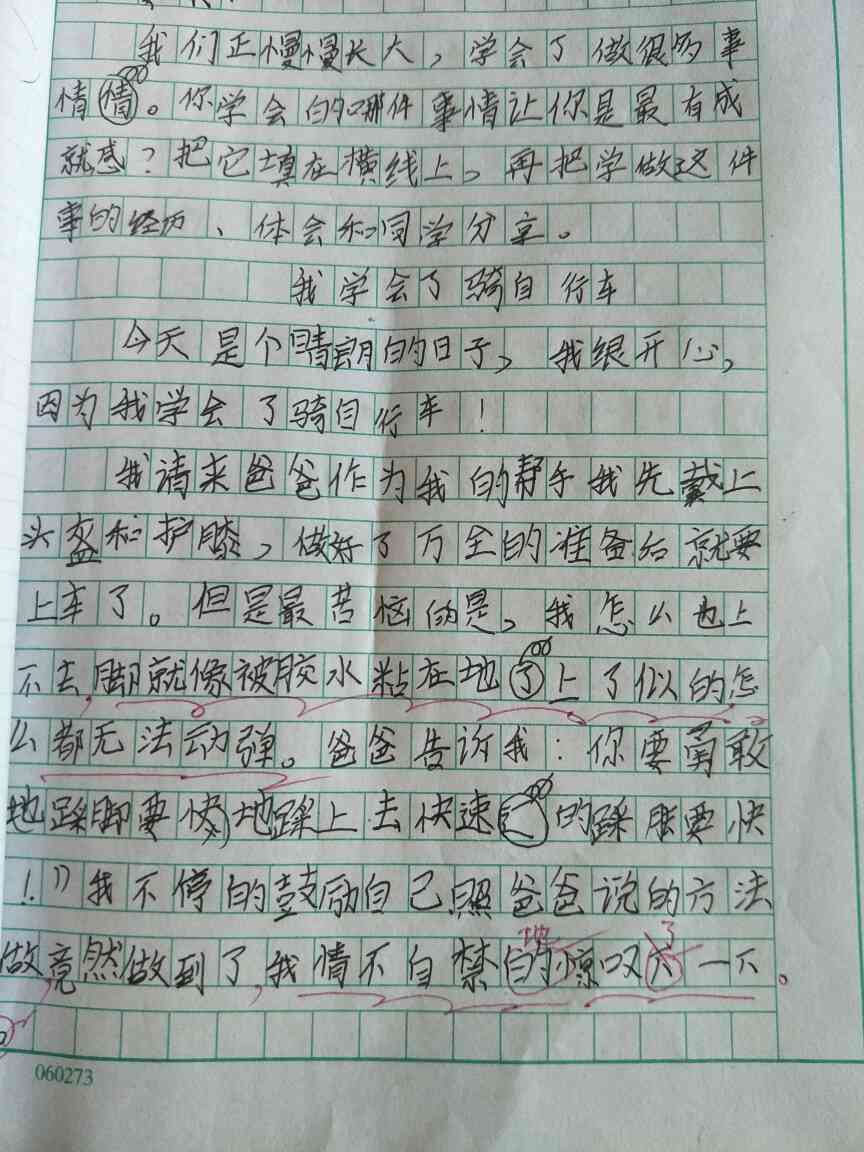 我们正慢慢长大，学会了做很多事
情情。你学会的哪件事情让你是最有成
就感？把它填在横线上，再把学做这件
事的经历、体会和同学分享。
我学会了骑自行车
今天是个晴朗的日子，我很开心，
因为我学会了骑自行车！
我请来爸爸作为我的帮手我先戴上
头盔和护膝，做好了万全的准备后就要
上车了。但是最苦恼的是，我怎么也上
不去，脚就像被胶水粘在地了上了似的，怎
么都无法动弹。爸爸告诉我：你要勇敢
地踩脚要快地踩上去快速的踩脚要快
！”我不停的鼓励自己照爸爸说的方法
做，竟然做到了，我情不自禁的惊叹一下。
地 了
060273